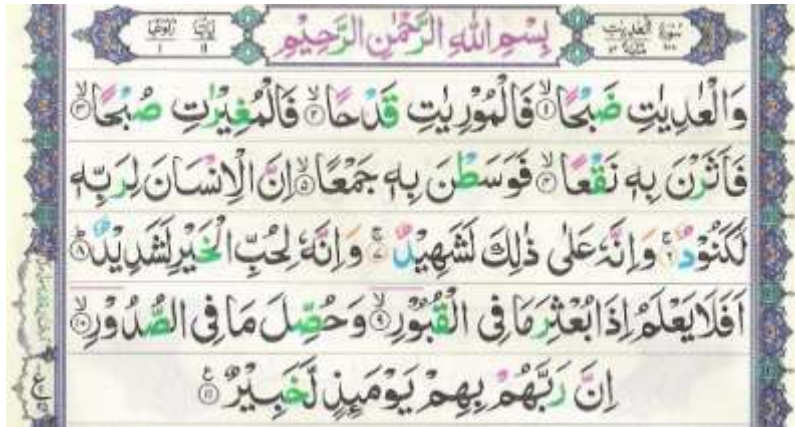 سُوْرَةُ الْعٰدِيٰتِ بِسْمِ اللّٰهِ الرَّحْمٰنِ الرَّحِيْمِ
وَالْعٰدِيٰتِ ضَبْحًا ۙ۝۱ فَالْمُوْرِيٰتِ قَدْحًا ۙ۝۲ فَالْمُغِيْرٰتِ صُبْحًا ۙ۝۳
فَاَثَرْنَ بِهٖ نَقْعًا ۙ۝۴ فَوَسَطْنَ بِهٖ جَمْعًا ۙ۝۵ اِنَّ الْاِنْسَانَ لِرَبِّهٖ
لَكَنُوْدٌ ۚ۝۶ وَاِنَّهٗ عَلٰى ذٰلِكَ لَشَهِيْدٌ ۚ۝۷ وَاِنَّهٗ لِحُبِّ الْخَيْرِ لَشَدِيْدٌ ؕ۝۸
اَفَلَا يَعْلَمُ اِذَا بُعْثِرَ مَا فِى الْقُبُوْرِ ۙ۝۹ وَحُصِّلَ مَا فِى الصُّدُوْرِ ۙ۝۱۰
اِنَّ رَبَّهُمْ بِهِمْ يَوْمَئِذٍ لَّخَبِيْرٌ ۝۱۱